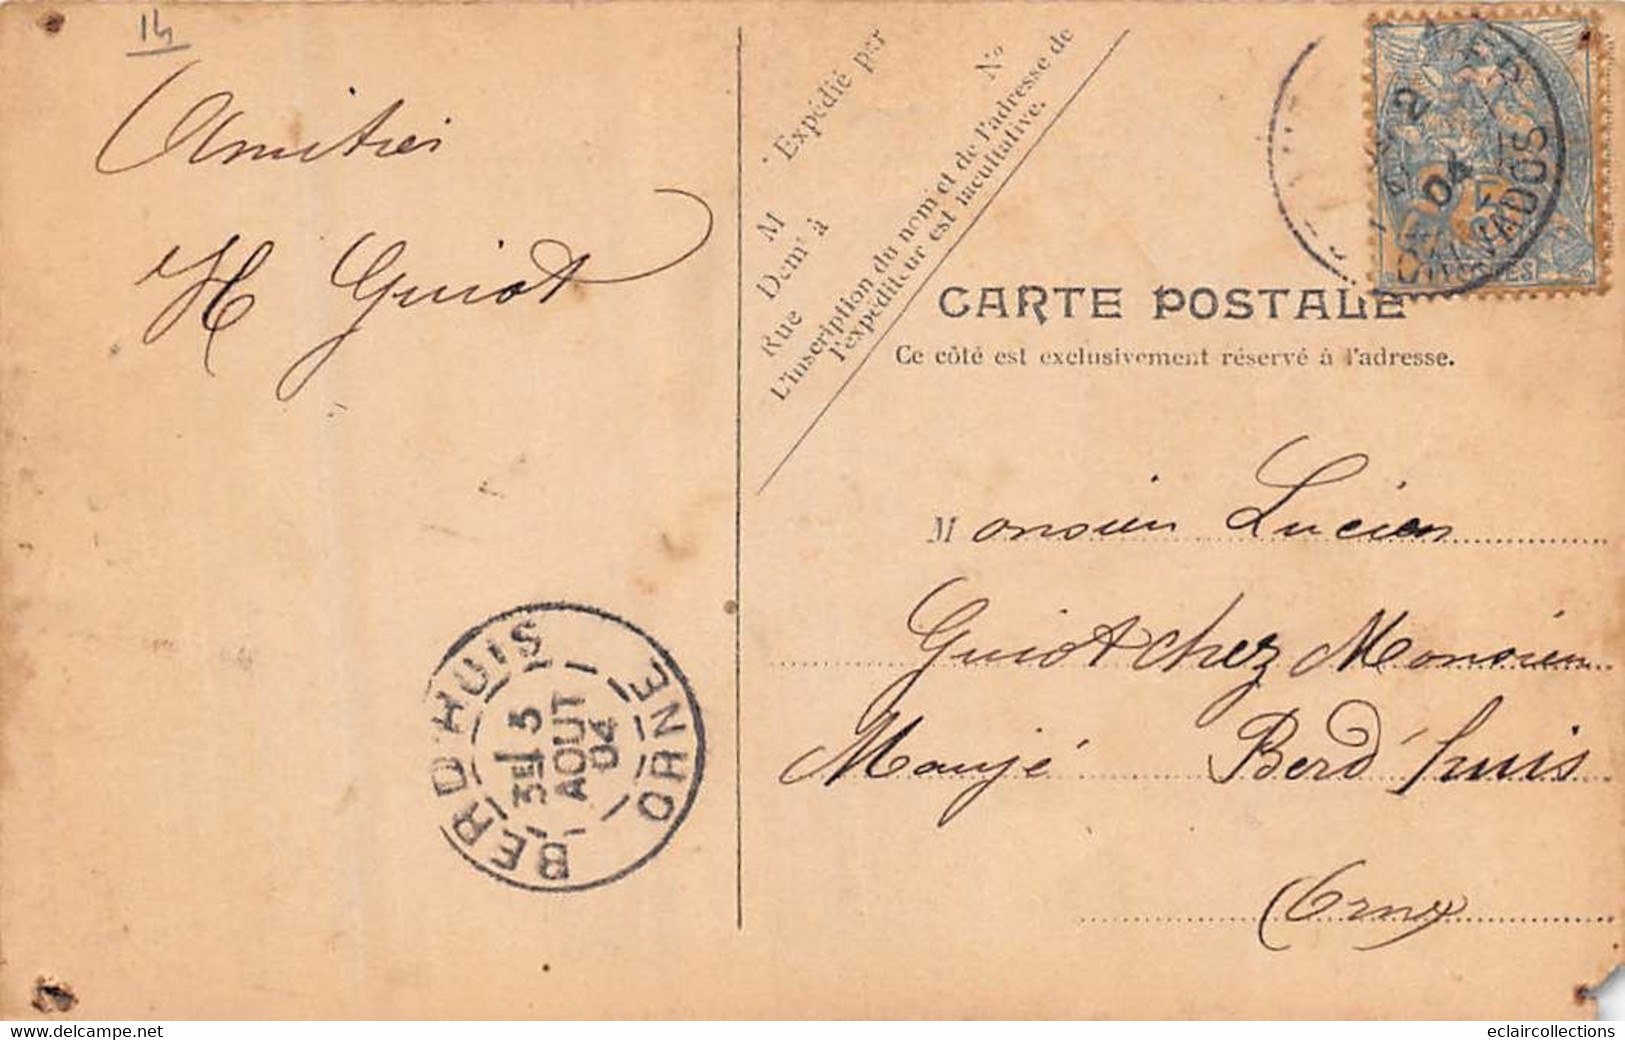 14
Amitiés
H Guiot
Expédié par
M
Demt à
Rue
No
L'inscription du nom et de l'adresse de
l'expéditeur est facultative.
CARTE POSTALE
Ce côté est exclusivement réservé à l'adresse.
Monsieur Lucien
Guiot chez Monsieur
Maujé Berd'huis
Orne
BERD'HUIS
3E 5
AOUT
04
ORNE
04
CALVADOS
eclaircollections